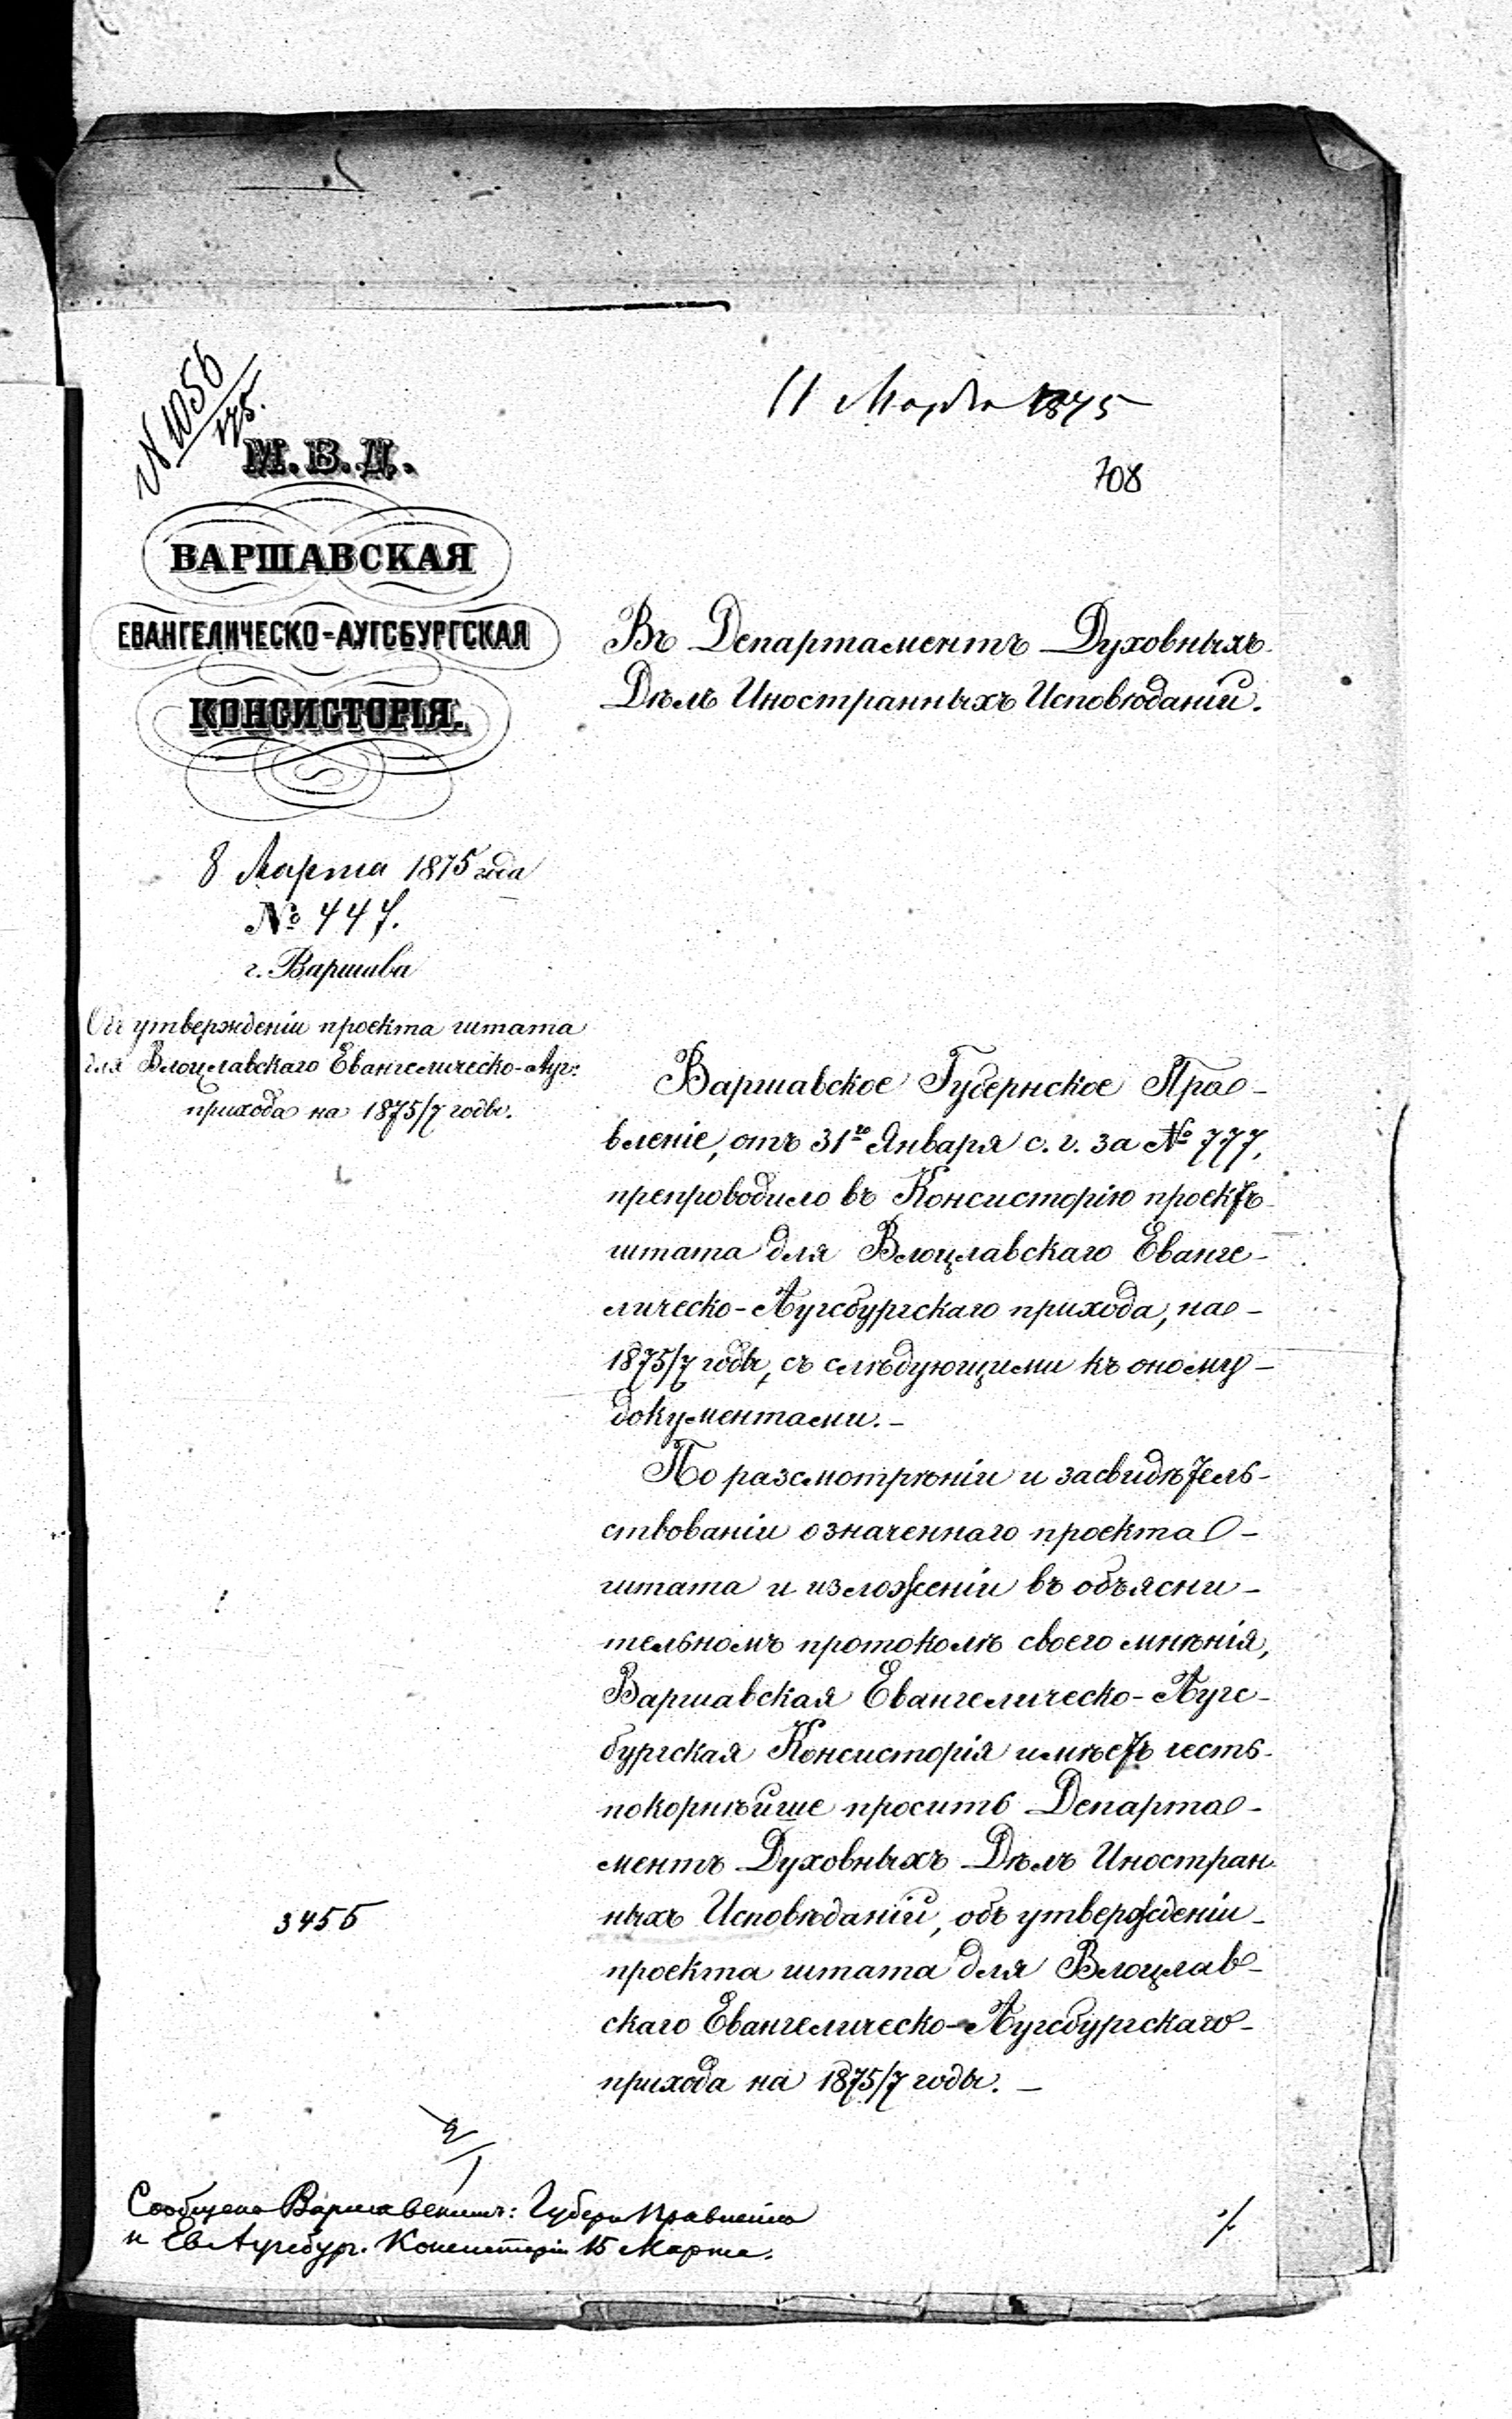 № 1056
175.
11 Марта 1875
708
М.В.Д.
ВАРШАВСКАЯ
ЕВАНГЕЛИЧЕСКО-АУГСБУРГСКАЯ
КОНСИСТОРІЯ.
8 Марта 1875 года
№ 447.
г. Варшава
Объ утвержденіи проекта штата
для Влоцлавскаго Евангелическо-Ауг:
прихода на 1875/7 годы.
Въ Департаментъ Духовныхъ
Дѣлъ Иностранныхъ Исповѣданій.
Варшавское Губернское Пра-
вленіе, отъ 31го Января с. г. за № 777,
препроводило въ Консисторію проектъ
штата для Влоцлавскаго Еванге-
лическо-Аугсбургскаго прихода, на
1875/7 годы, съ слѣдующими къ оному
документами.-
По разсмотрѣніи и засвидѣтель-
ствованіи означеннаго проекта
штата и изложеніи въ объясни-
тельномъ протоколѣ своего мнѣнія,
Варшавская Евангелическо-Аугс-
бургская Консисторія имѣетъ честь
покорнѣйше просить Департа-
ментъ Духовныхъ Дѣлъ Иностран-
ныхъ Исповѣданій, объ утвержденіи
проекта штата для Влоцлав-
скаго Евангелическо-Аугсбургскаго
прихода на 1875/7 годы. —
3455
Сообщено Варшавскимъ: Губерн Правленію
и Ев Аугсбург. Консисторіи 15 Марта.